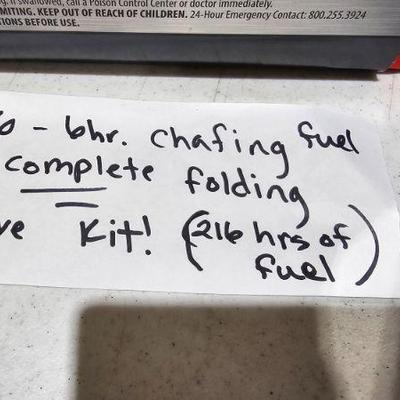 g. If swallowed, call a Poison Control Center or doctor immediately.
MITING. KEEP OUT OF REACH OF CHILDREN. 24-Hour Emergency Contact: 800.255.3924
TIONS BEFORE USE.
- 6hr. Chafing fuel
complete folding
ve Kit! (216 hrs of
fuel)